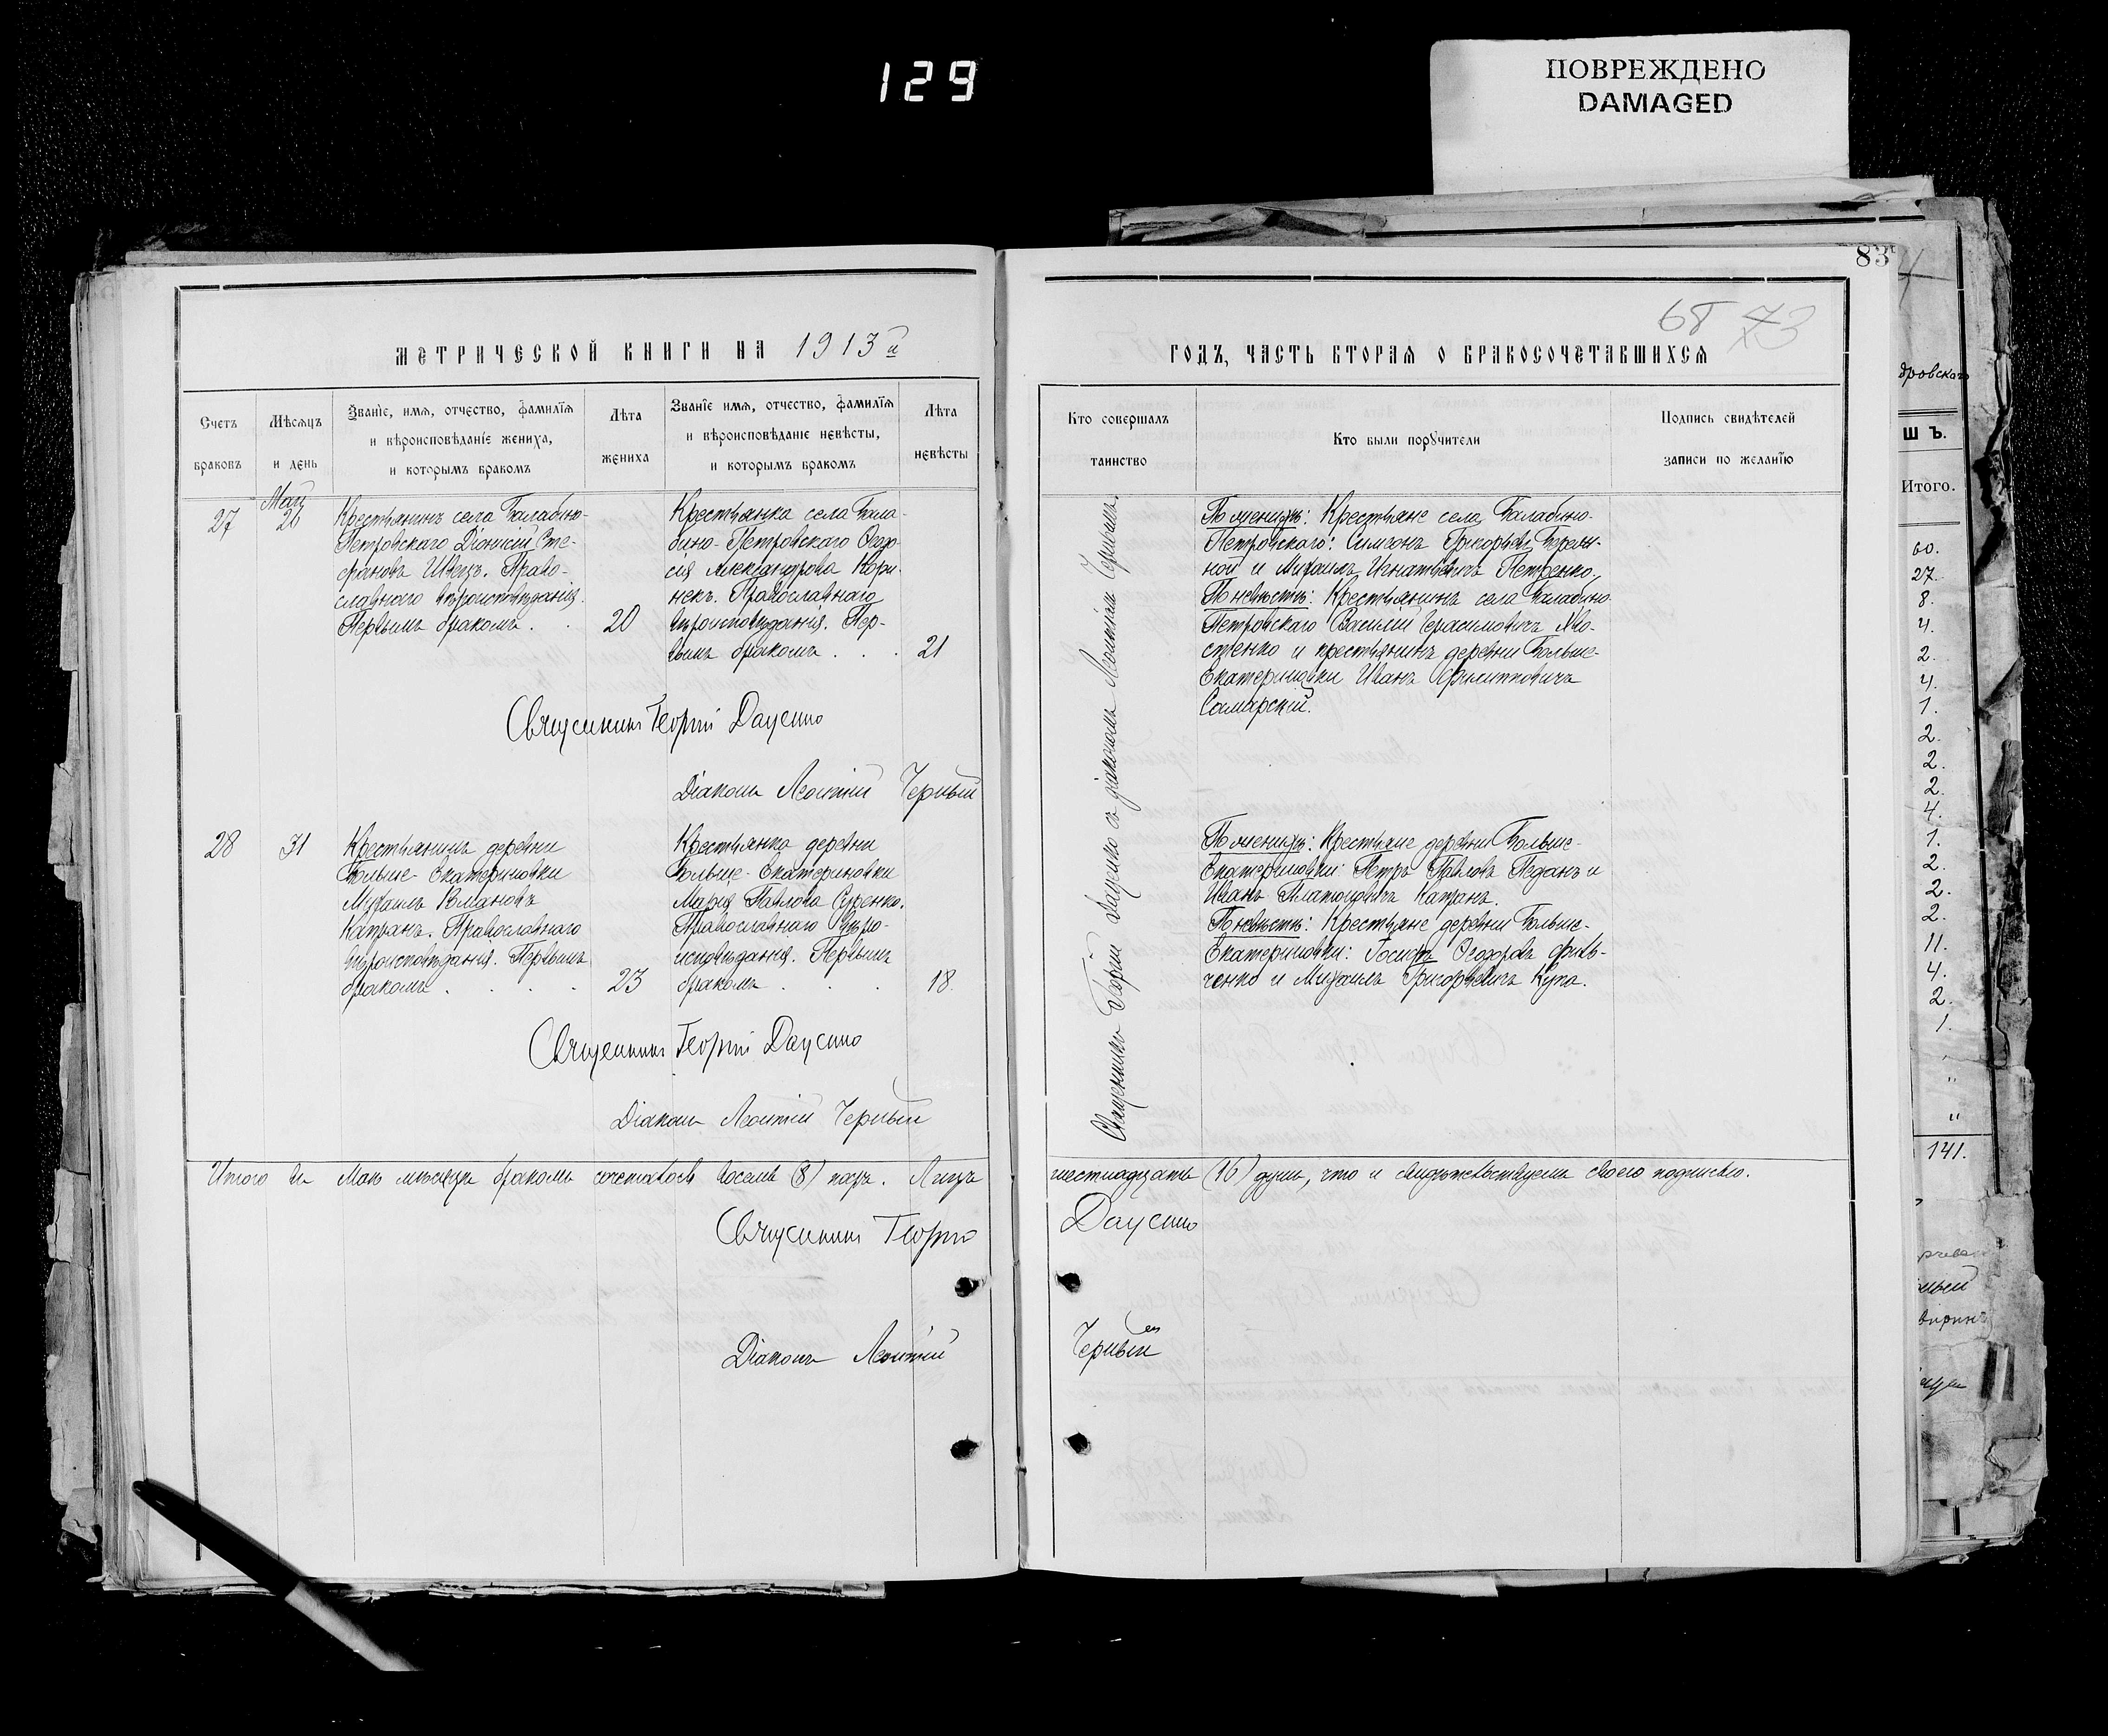 129
ПОВРЕЖДЕНО
DAMAGED
МЕТРИЧЕСКОЙ КНИГИ НА 1913й
Счетъ браковъ
Мѣсяцъ и день
Званіе, имя, отчество, фамилія
и вѣроисповѣданіе жениха,
и которымъ бракомъ
Лѣта
жениха
Званіе имя, отчество, фамилія
и вѣроисповѣданіе невѣсты,
и которымъ бракомъ
Лѣта
невѣсты
27
Май
26
Крестьянинъ села Балабино-
Петровскаго Діонисій Сте-
фановъ Швецъ. Право-
славнаго вѣроисповѣданія.
Первымъ бракомъ . .
20
Крестьянка села Бала-
бино-Петровскаго Ѳеодо-
сія Александрова Кори-
некъ. Православнаго
вѣроисповѣданія. Пер-
вымъ бракомъ . . .
21
Священникъ Георгій Даценко
Діаконъ Леонтій Черный
28
31
Крестьянинъ деревни
Больше-Екатериновки
Михаилъ
Катранъ. Православнаго
вѣроисповѣданія. Первымъ
бракомъ . . . .
23
Крестьянка деревни
Больше-Екатериновки
Марія Павлова Суренко.
Православнаго вѣро-
исповѣданія. Первымъ
бракомъ . . .
18.
Священникъ Георгій Даценко
Діаконъ Леонтій Черный
Итого въ Маѣ мѣсяцѣ бракомъ сочеталось восемь (8) паръ. Лицъ
Священникъ Георгій
Діаконъ Леонтій
83
68 73
ГОДЪ, ЧАСТЬ ВТОРАЯ О БРАКОСОЧЕТАВШИХСЯ
Кто совершалъ
таинство
Кто были поручители
Подпись свидѣтелей
записи по желанію
Священникъ Георгій Даценко съ діакономъ Леонтіемъ Чернымъ.
По женихѣ: Крестьяне села Балабино-
Петровскаго: Симеонъ Григорьевъ
и Михаилъ Игнатьевичъ Петренко.
По невѣстѣ: Крестьянинъ села Балабино-
Петровскаго Василій Герасимовичъ
и крестьянинъ деревни Больше-
Екатериновки Иванъ Филипповичъ
Самарскій.
По женихѣ: Крестьяне деревни Больше-
Екатериновки Петръ Павловъ Педанъ и
Иванъ Платоновичъ Катранъ.
По невѣстѣ: Крестьяне деревни Больше-
Екатериновки: Іосифъ Ѳеодоровъ Филь-
ченко и Михаилъ Григорьевичъ Купа.
шестнадцать (16) душъ, что и свидѣтельствуемъ своею подписью.
Даценко
Черный
дровскаго
Ш Ъ.
Итого.
60.
27.
8.
4.
2.
4.
1.
2.
2.
2.
4.
1.
2.
2.
2.
11.
4.
2.
1.
"
"
141.